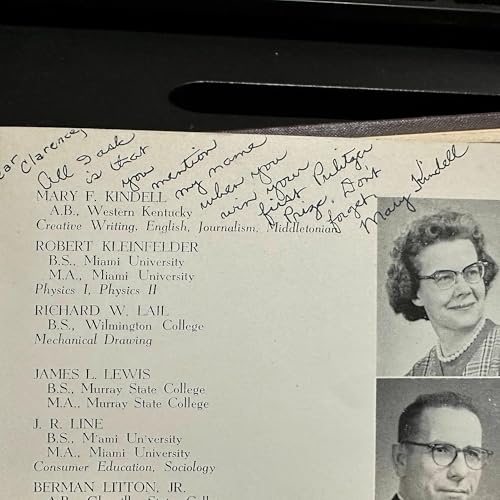 ear Clarence,
All I ask
is that
you mention
my name
when you
win your
first Pulitzer
Prize. Don't
forget
Mary Kindell
MARY F. KINDELL
A.B., Western Kentucky
Creative Writing, English, Journalism, Middletonian
ROBERT KLEINFELDER
B.S., Miami University
M.A., Miami University
Physics I, Physics II
RICHARD W. LAIL
B.S., Wilmington College
Mechanical Drawing
JAMES L. LEWIS
B.S., Murray State College
M.A., Murray State College
J. R. LINE
B.S., Miami University
M.A., Miami University
Consumer Education, Sociology
BERMAN LITTON, JR.
A.B., State